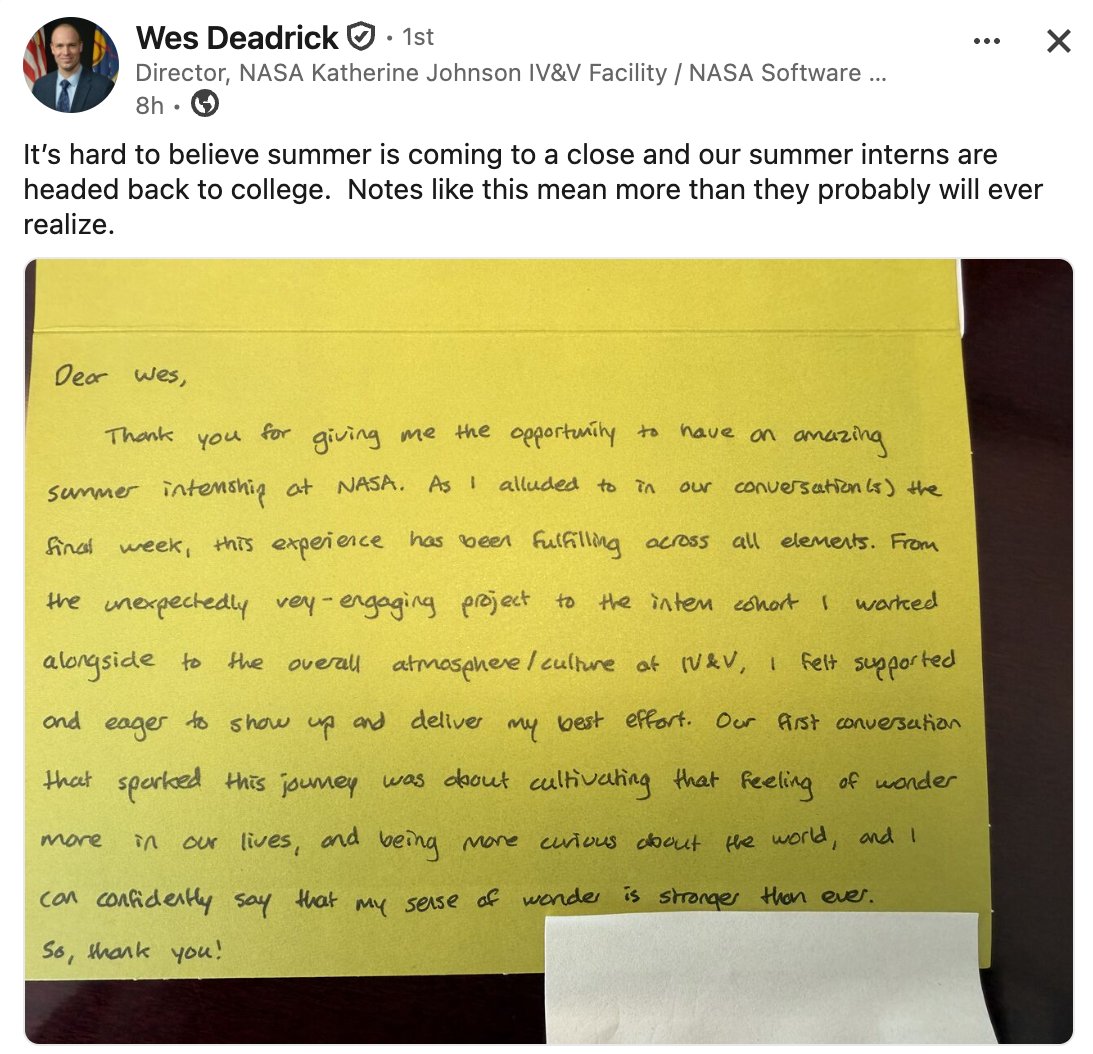 Wes Deadrick • 1st
Director, NASA Katherine Johnson IV&V Facility / NASA Software ...
8h •
It's hard to believe summer is coming to a close and our summer interns are
headed back to college.  Notes like this mean more than they probably will ever
realize.
Dear Wes,
Thank you for giving me the opportunity to have an amazing
summer internship at NASA. As I alluded to in our conversation(s) the
final week, this experience has been fulfilling across all elements. From
the unexpectedly very-engaging project to the intern cohort I worked
alongside to the overall atmosphere/culture at IV&V, I felt supported
and eager to show up and deliver my best effort. Our first conversation
that sparked this journey was about cultivating that feeling of wonder
more in our lives, and being more curious about the world, and I
can confidently say that my sense of wonder is stronger than ever.
So, thank you!